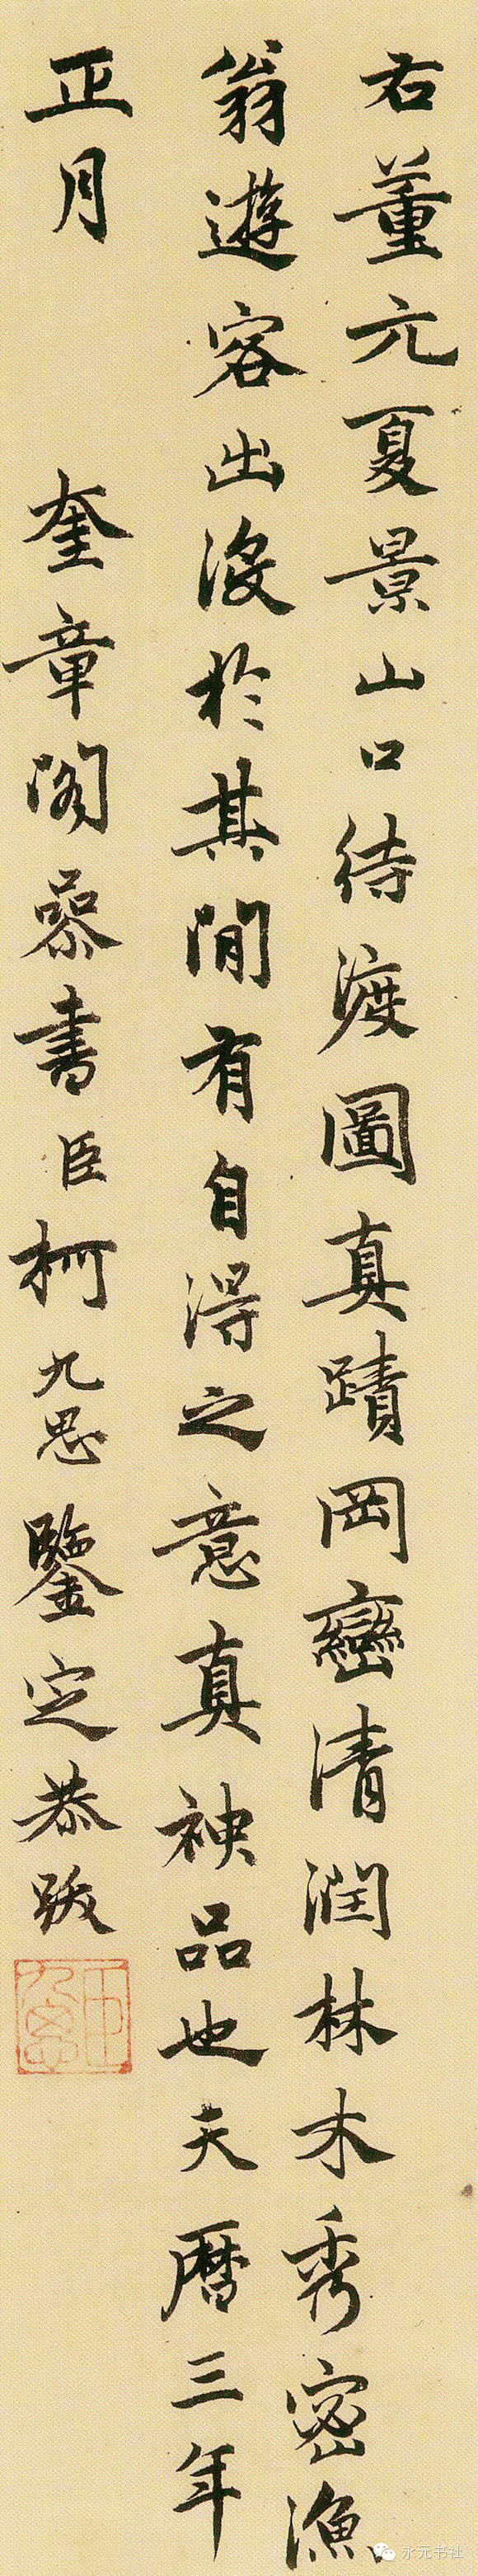 右董元夏景山口待渡圖真蹟岡巒清潤林木秀密漁
翁遊客出沒於其間有自得之意真神品也天曆三年
正月 奎章閣叅書臣柯九思鑒定恭跋
臣九思
永元书社